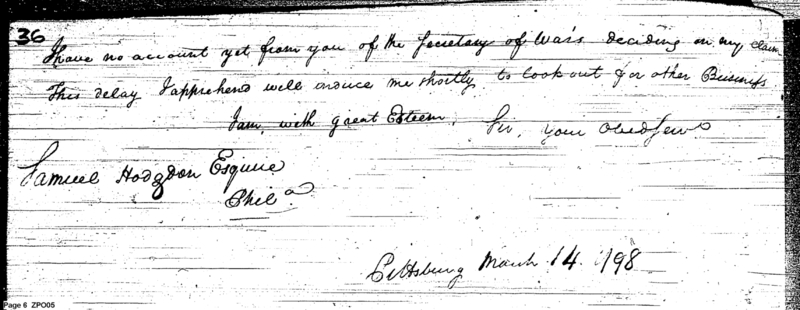 36
I have no account yet from you of the Secretary of War's deciding on my claim
This delay I apprehend will induce me shortly to look out for other Business
I am, with great Esteem, Sir, your Obed Serv
Samuel Hodgdon Esquire
Phila
Pittsburg March 14. 1798
Page 6 ZPO05